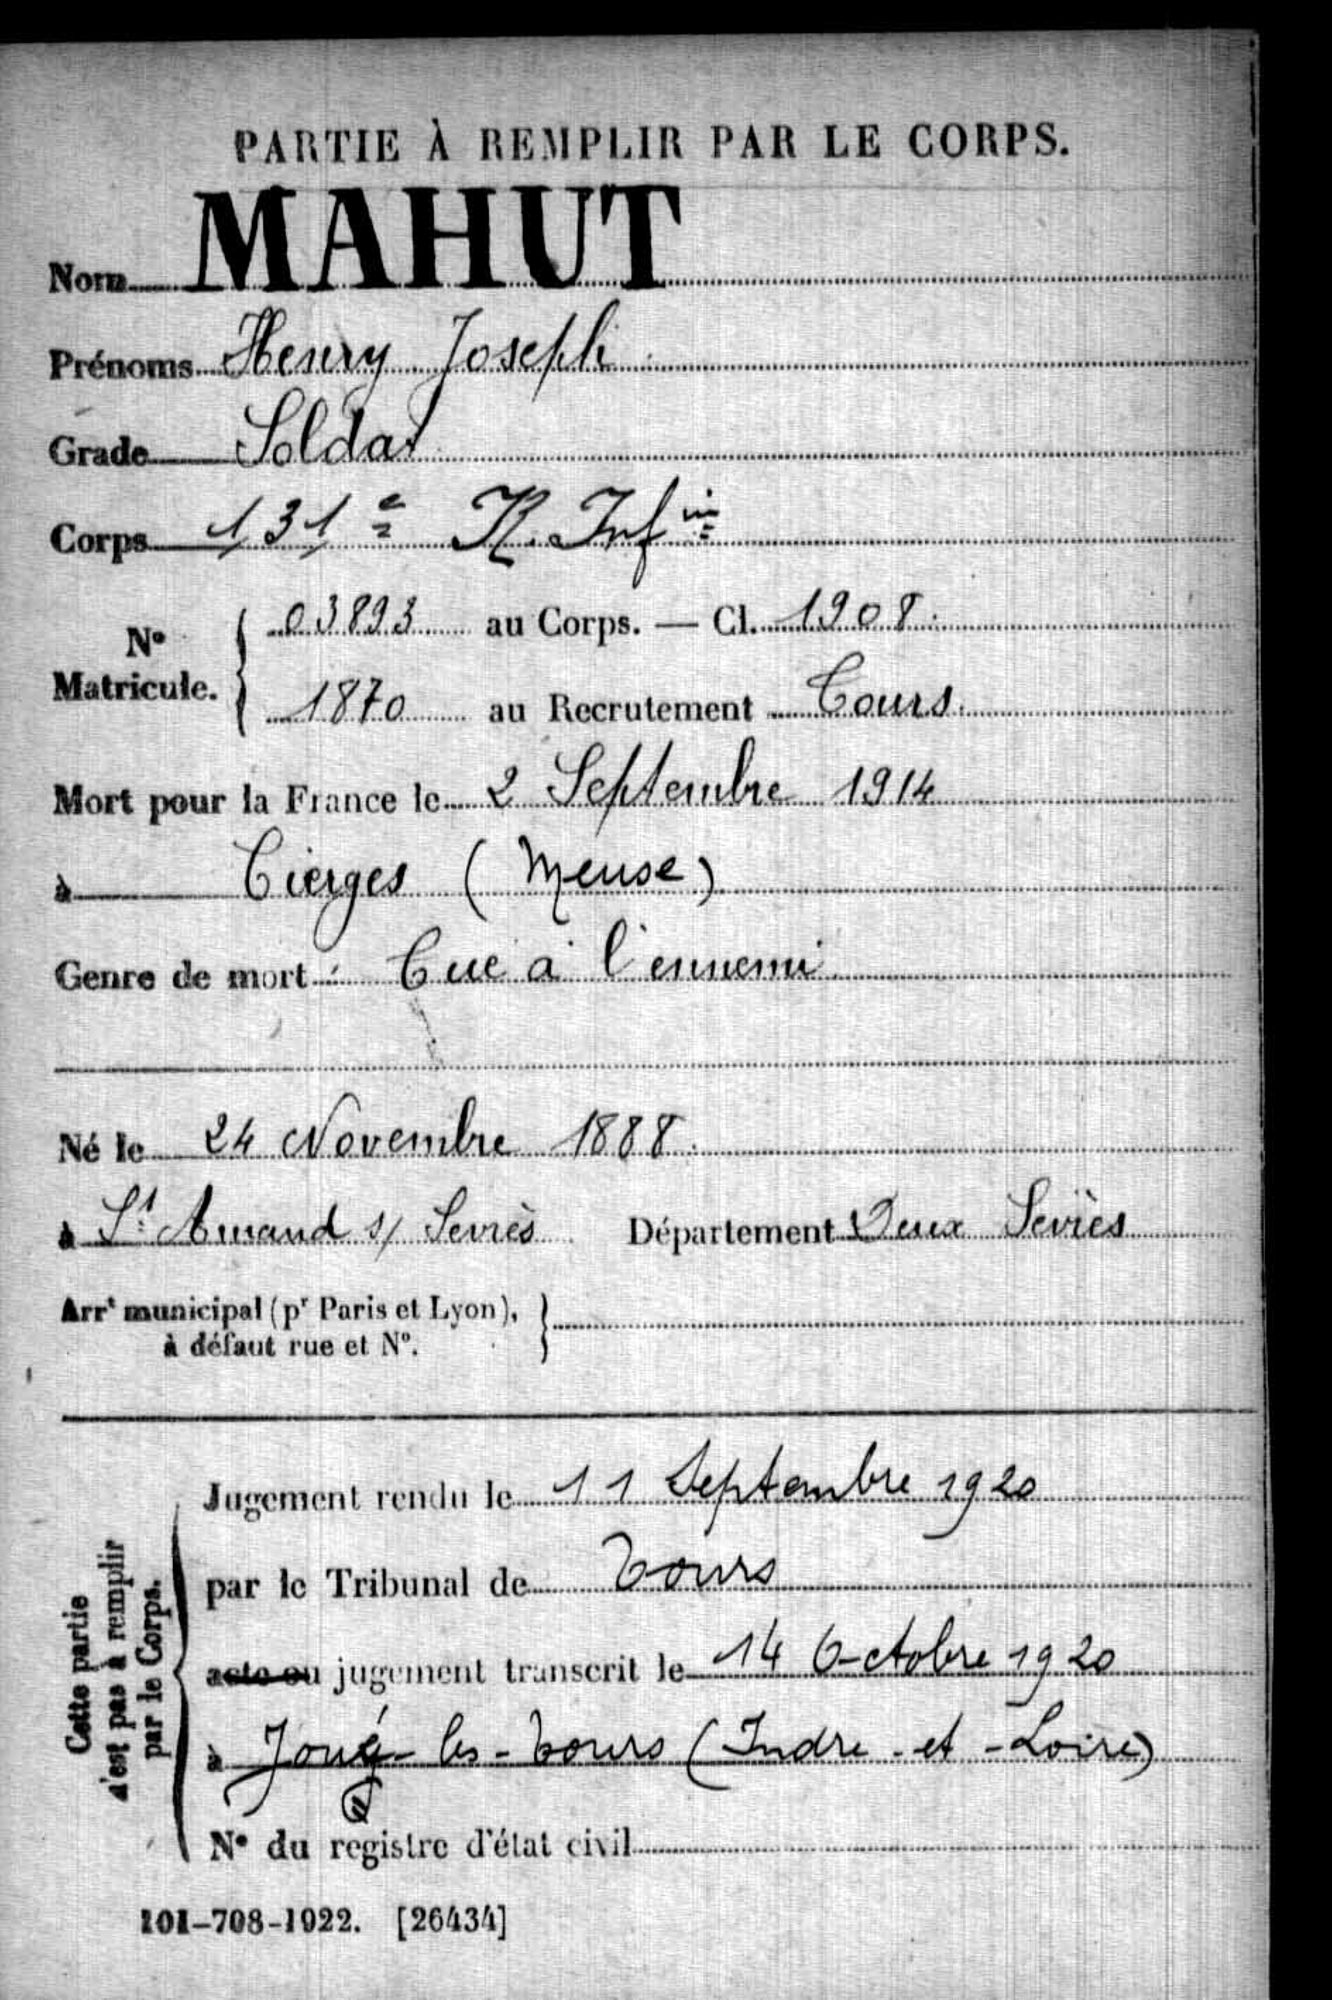 PARTIE À REMPLIR PAR LE CORPS.
Nom MAHUT
Prénoms Henry Joseph
Grade Soldat
Corps 131e R. Infie
N° Matricule. { 03893 au Corps. — Cl. 1908.
1870 au Recrutement Tours.
Mort pour la France le 2 Septembre 1914
à Cierges (Meuse)
Genre de mort : Tué à l'ennemi
Né le 24 Novembre 1888.
à St Amand s/ Sevrès Département Deux Sevrès
Arrt municipal (pr Paris et Lyon), }
à défaut rue et N°.
Cette partie
n'est pas à remplir
par le Corps.
Jugement rendu le 11 Septembre 1920
par le Tribunal de Tours
acte ou jugement transcrit le 14 Octobre 1920
à Joué-les-Tours (Indre-et-Loire)
N° du registre d'état civil
101-708-1922. [26434]